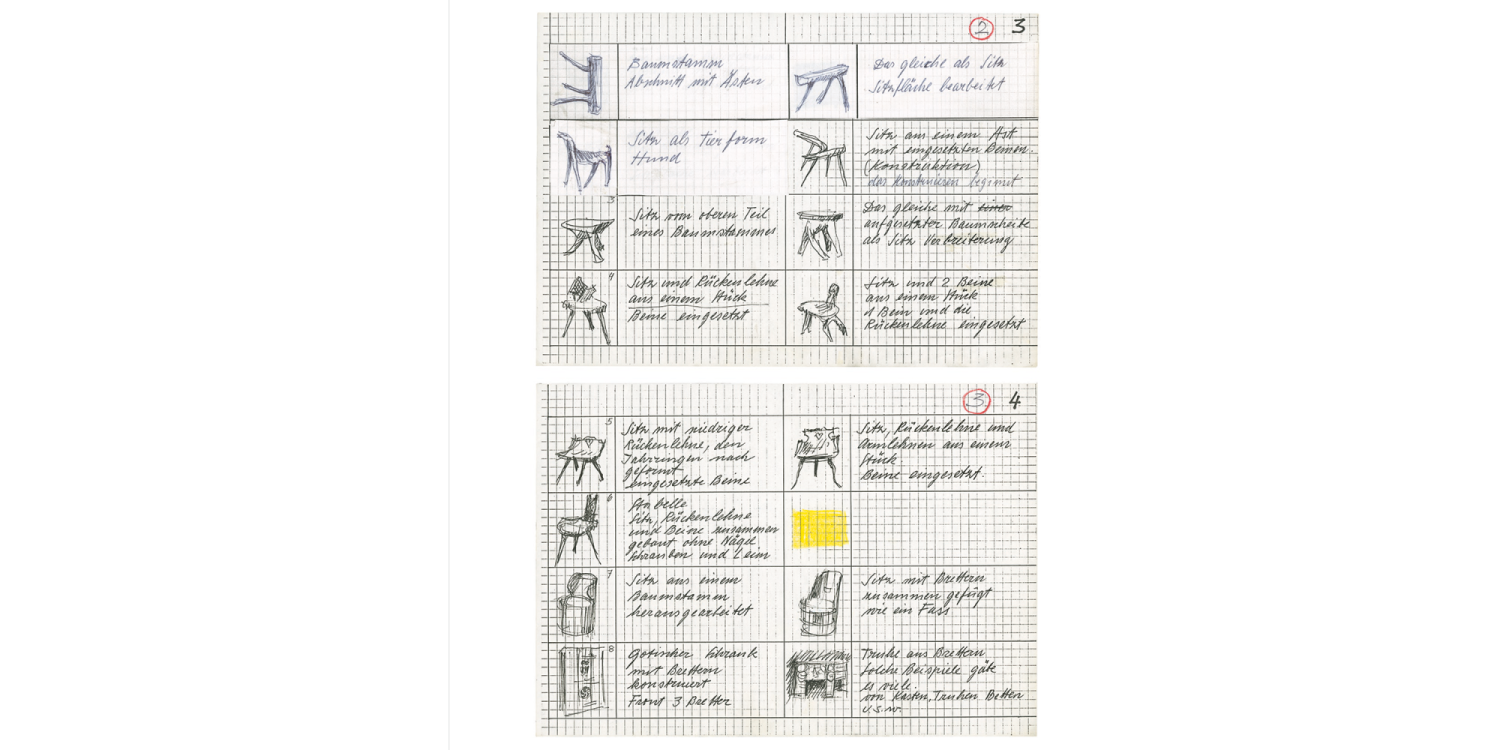 2 3
Baumstamm
Abschnitt mit Ästen
Das gleiche als Sitz
Sitzfläche bearbeitet
Sitz als Tierform
Hund
Sitz aus einem Ast
mit eingesetzten Beinen.
(Konstruktion)
das Konstruieren beginnt
3
Sitz vom oberen Teil
eines Baumstammes
Das gleiche mit einer
aufgesetzter Baumscheibe
als Sitz Verbreiterung
4
Sitz und Rückenlehne
aus einem Stück
Beine eingesetzt
Sitz und 2 Beine
aus einem Stück
1 Bein und die
Rückenlehne eingesetzt
3 4
5
Sitz mit niedriger
Rückenlehne, den
Jahrringen nach
geformt
eingesetzte Beine
Sitz, Rückenlehne und
Armlehnen aus einem
Stück
Beine eingesetzt.
6
Stabelle
Sitz, Rückenlehne
und Beine zusammen
gebaut ohne Nägel
Schrauben und Leim
7
Sitz aus einem
Baumstamm
herausgearbeitet
Sitz mit Brettern
zusammen gefügt
wie ein Fass
8
gotischer Schrank
mit Brettern
konstruiert
Front 3 Bretter
Truhe aus Brettern
Solche Beispiele gäbe
es viele.
von Kästen, Truhen Betten
u.s.w.